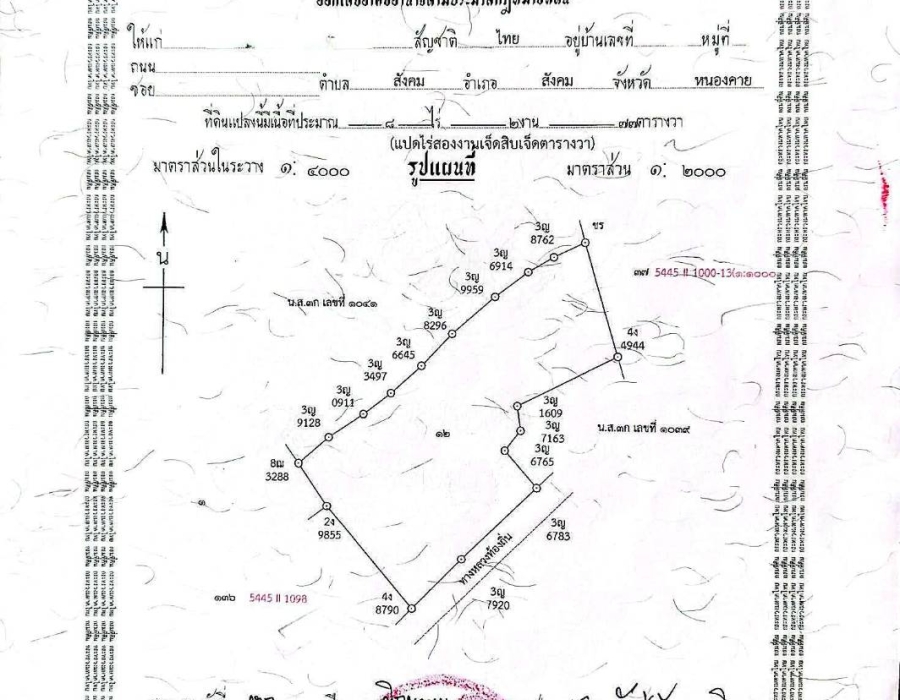 ให้แก่ สัญชาติ ไทย อยู่บ้านเลขที่ หมู่ที่
ถนน
ซอย ตำบล สังคม อำเภอ สังคม จังหวัด หนองคาย
ที่ดินแปลงนี้มีเนื้อที่ประมาณ ๘ ไร่ ๒ งาน ๗๗ ตารางวา
(แปดไร่สองงานเจ็ดสิบเจ็ดตารางวา)
มาตราส่วนในระวาง ๑: ๔๐๐๐ รูปแผนที่ มาตราส่วน ๑: ๒๐๐๐
น
ขร
3ญ
8762
3ญ
6914
3ญ
9959
๓๗ 5445 II 1000-13(๑:๑๐๐๐
น.ส.๓ก เลขที่ ๑๐๔๑
3ญ
8296
4ง
4944
3ญ
6645
3ญ
3497
3ญ
0911
3ญ
1609
3ญ
9128
๑๒
3ญ
7163
น.ส.๓ก เลขที่ ๑๐๓๙
3ญ
6765
8ฌ
3288
๑
2ง
9855
3ญ
6783
ทางหลวงท้องถิ่น
๑๓๖ 5445 II 1098
4ง
8790
3ญ
7920